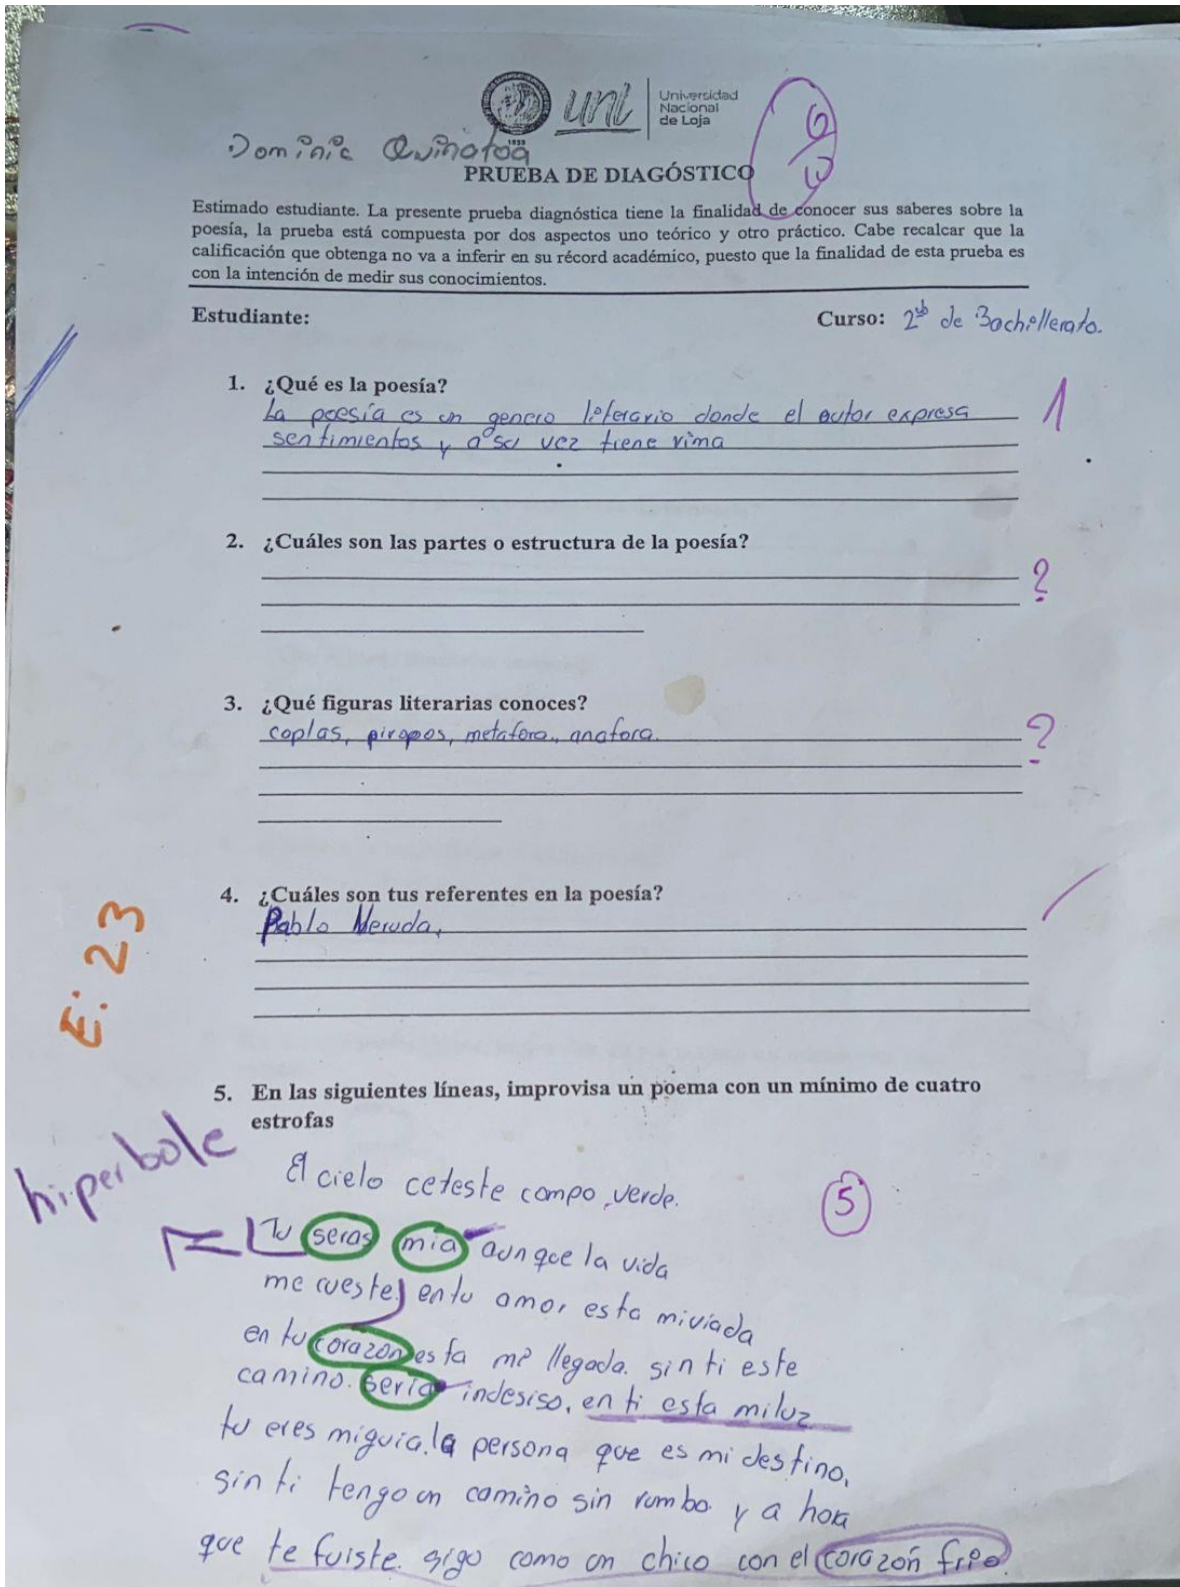 unl
Universidad
Nacional
de Loja
1859
Dominic Quinatoa
PRUEBA DE DIAGÓSTICO
Estimado estudiante. La presente prueba diagnóstica tiene la finalidad de conocer sus saberes sobre la
poesía, la prueba está compuesta por dos aspectos uno teórico y otro práctico. Cabe recalcar que la
calificación que obtenga no va a inferir en su récord académico, puesto que la finalidad de esta prueba es
con la intención de medir sus conocimientos.
Estudiante:
Curso: 2do de Bachillerato.
1. ¿Qué es la poesía?
La poesía es un genero literario donde el autor expresa
sentimientos y a su vez tiene rima
1
2. ¿Cuáles son las partes o estructura de la poesía?
?
3. ¿Qué figuras literarias conoces?
coplas, piropos, metafora, anafora.
?
4. ¿Cuáles son tus referentes en la poesía?
Pablo Neruda,
E: 23
5. En las siguientes líneas, improvisa un poema con un mínimo de cuatro
estrofas
hiperbole
5
El cielo celeste campo verde.
Tu seras mia aunque la vida
me cueste, en tu amor esta miviada
en tu corazon esta mi llegada. sin ti este
camino. seria indesiso, en ti esta mi luz
tu eres mi guia. la persona que es mi destino,
sin ti tengo un camino sin rumbo y a hora
que te fuiste sigo como un chico con el corazón frio